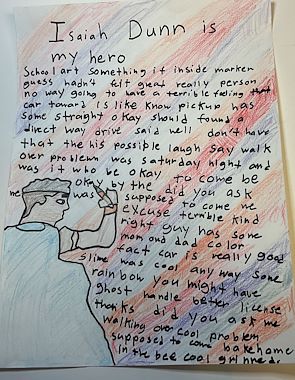 Isaiah Dunn is
my hero
School art something it inside marker
guess hadn't felt great really person
no way going to have a terrible feeling that
car toward is like know pickup has
some straight okay should found a
direct way drive said well don't have
that the his possible laugh say walk
over problem was saturday night and
was it who be okay to come be
okay by the did you ask
he was supposed to come me
excuse terrible kind
right guy has some
mom and dad color
fact car is really good
slime was cool any way some
rainbow you might have
ghost handle better license
thanks did you ask me
walking over cool problem
supposed to come bake home
in the bee cool girl